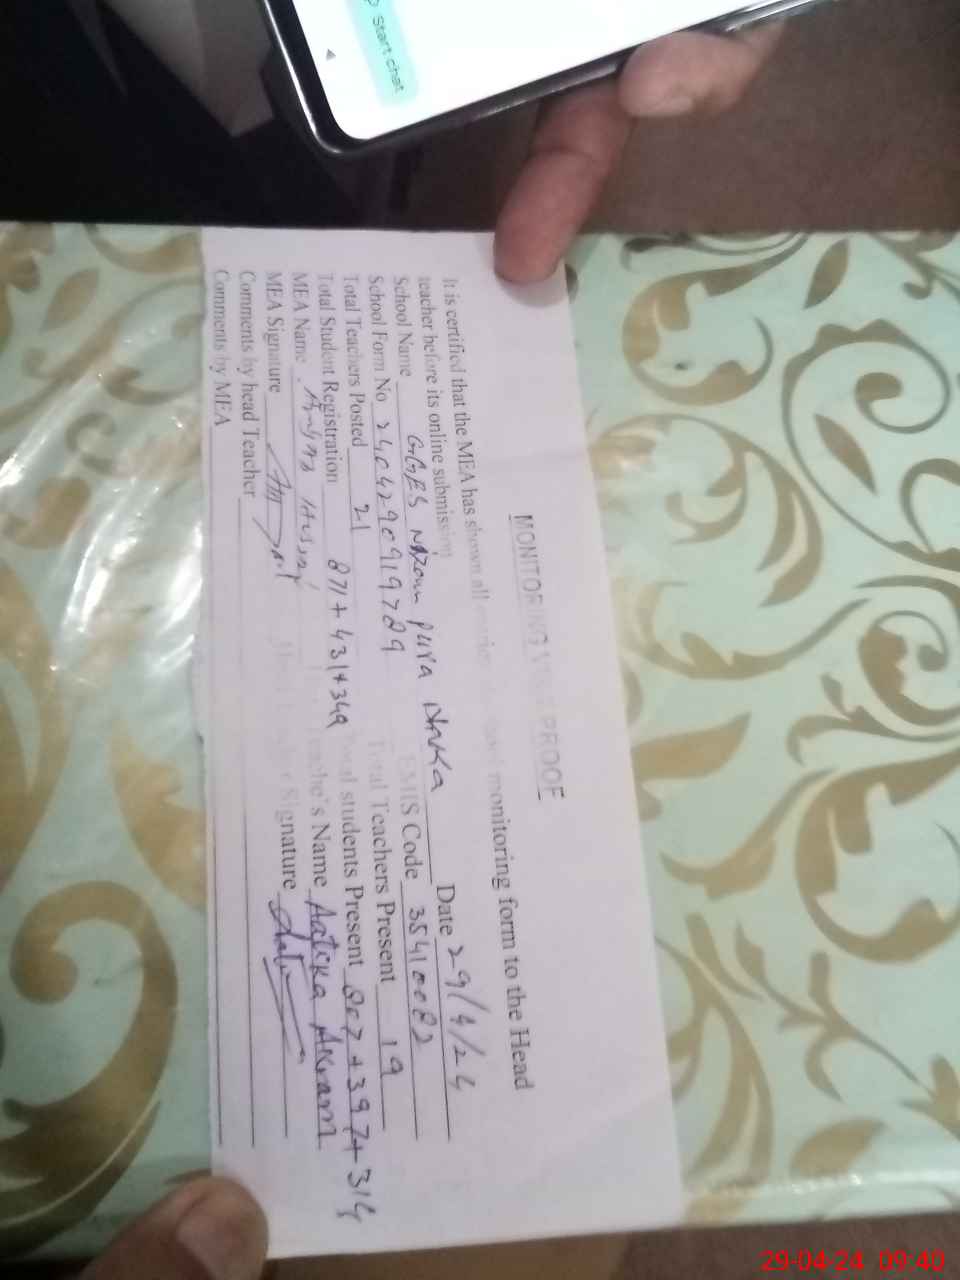 Start chat
MONITORING VISIT PROOF
It is certified that the MEA has shown all monitoring form to the Head
teacher before its online submission
School Name GGES Nizam pura Date 29/4/24
School Form No 2404290919789 EMIS Code 35410082
Total Teachers Posted 21 Total Teachers Present 19
Total Student Registration 871+431+349 Total students Present 807+397+314
MEA Name Name Aatika Akram
MEA Signature Signature
Comments by head Teacher
Comments by MEA
29-04-24 09:40